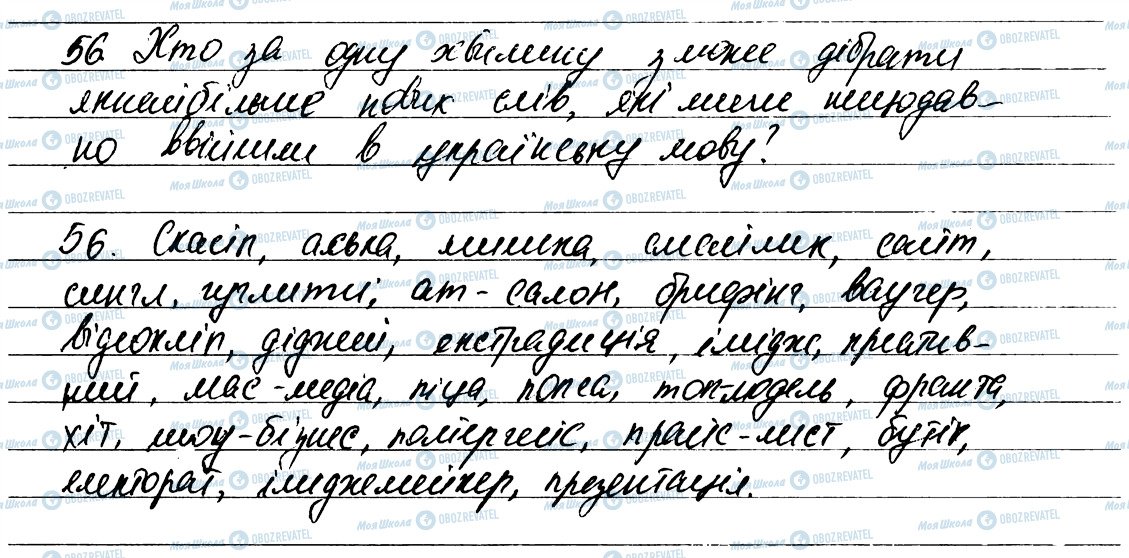 56. Хто за одну хвилину зможе дібрати
якнайбільше нових слів, які лише нещодав-
но ввійшли в українську мову?
56. Скайп, аська, мишка, смайлик, сайт,
сингл, гуглити, ат-салон, брифінг, ваучер,
відеокліп, діджей, екстрадиція, імідж, креатив-
ний, мас-медіа, піца, попса, топ-модель,
хіт, шоу-бізнес, прайс-лист, бутік,
електорат, іміджмейкер, презентація.